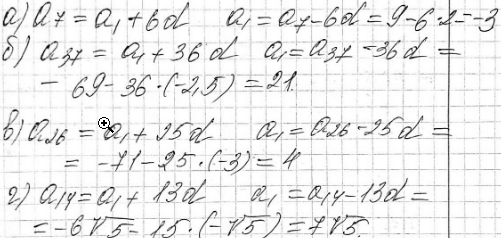 а) a₇ = a₁ + 6d a₁ = a₇ - 6d = 9 - 6·2 = -3
б) a₃₇ = a₁ + 36d a₁ = a₃₇ - 36d =
- 69 - 36·(-2,5) = 21.
в) a₂₆ = a₁ + 25d a₁ = a₂₆ - 25d =
= -71 - 25·(-3) = 4
г) a₁₄ = a₁ + 13d a₁ = a₁₄ - 13d =
= -6√5 - 15·(-√5) = 7√5.